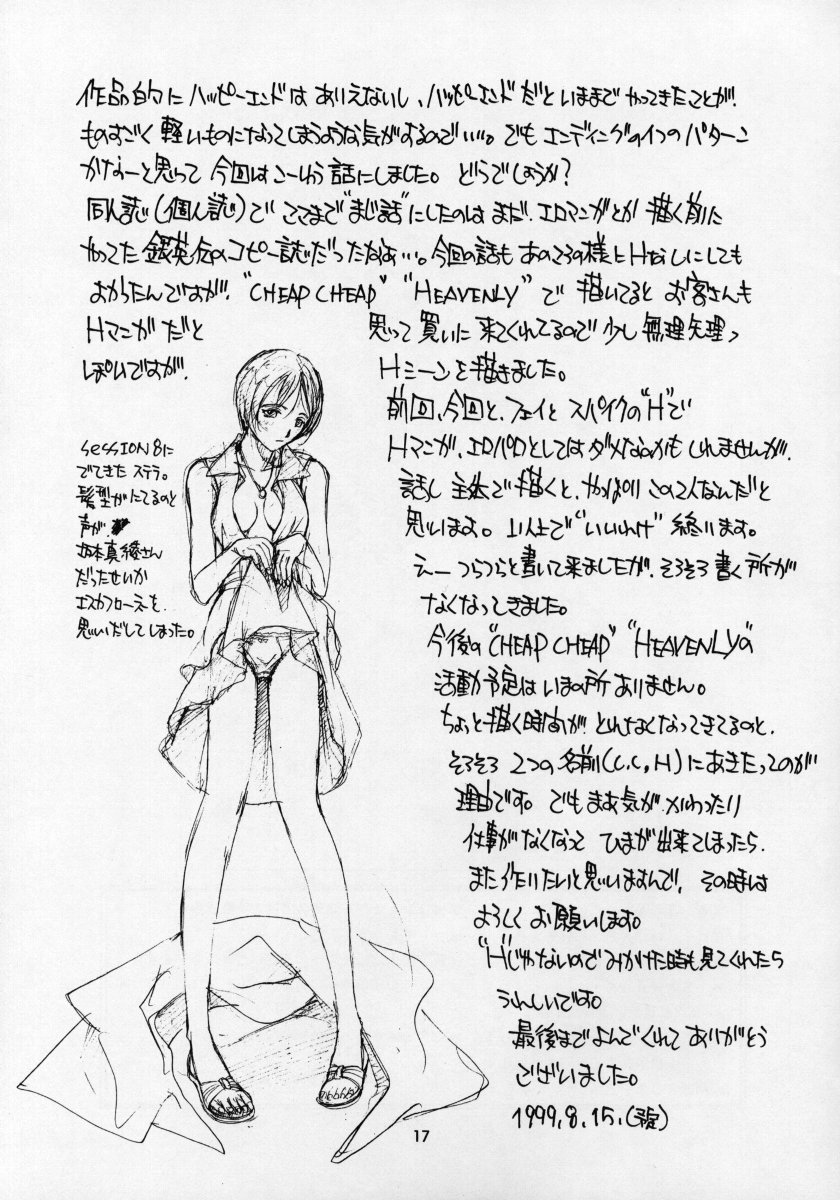 作品的にハッピーエンドはありえないし、ハッピーエンドだといままでやってきたことが、
ものすごく軽いものになってしまうような気がするので…。でもエンディングの1つのパターン
かなーと思って今回はこーいう話にしました。どうでしょうか?
同人誌(個人誌)でここまで"まじ話"にしたのはまだ、エロマンガとか描く前に
やってた銀英伝のコピー誌だったなぁ…。今回の話もあのころの様にHなしにしても
よかったんですが、"CHEAP CHEAP" "HEAVENLY"で描いてるとお客さんも
Hマンガだと思って買いに来てくれてるので少し無理矢理っ
ぽいですが、Hシーンを描きました。
前回、今回と、フェイとスパイクの"H"で
Hマンガ、エロパロとしてはダメなのかもしれませんが、
話し主体で描くと、やっぱりこの2人なんだと
思います。以上で"いいわけ"終ります。
えーつらつらと書いて来ましたが、そろそろ書く所が
なくなってきました。
今後の"CHEAP CHEAP" "HEAVENLY"の
活動予定はいまの所ありません。
ちょっと描く時間がとれなくなってきてるのと、
そろそろ2つの名前(C.C,H)にあきたってのが
理由です。でもまあ気がかわったり
仕事がなくなってひまが出来てしまったら、
また作りたいと思いますんで、その時は
よろしくお願いします。
"H"じゃないのでみかけた時も見てくれたら
うれしいです。
最後までよんでくれてありがとう
ございました。
1999.8.15.
SESSION8に
でてきたステラ。
髪型がにてるのと
声が
坂本真綾さん
だったせいか
エスカフローネを
思いだしてしまった。
17